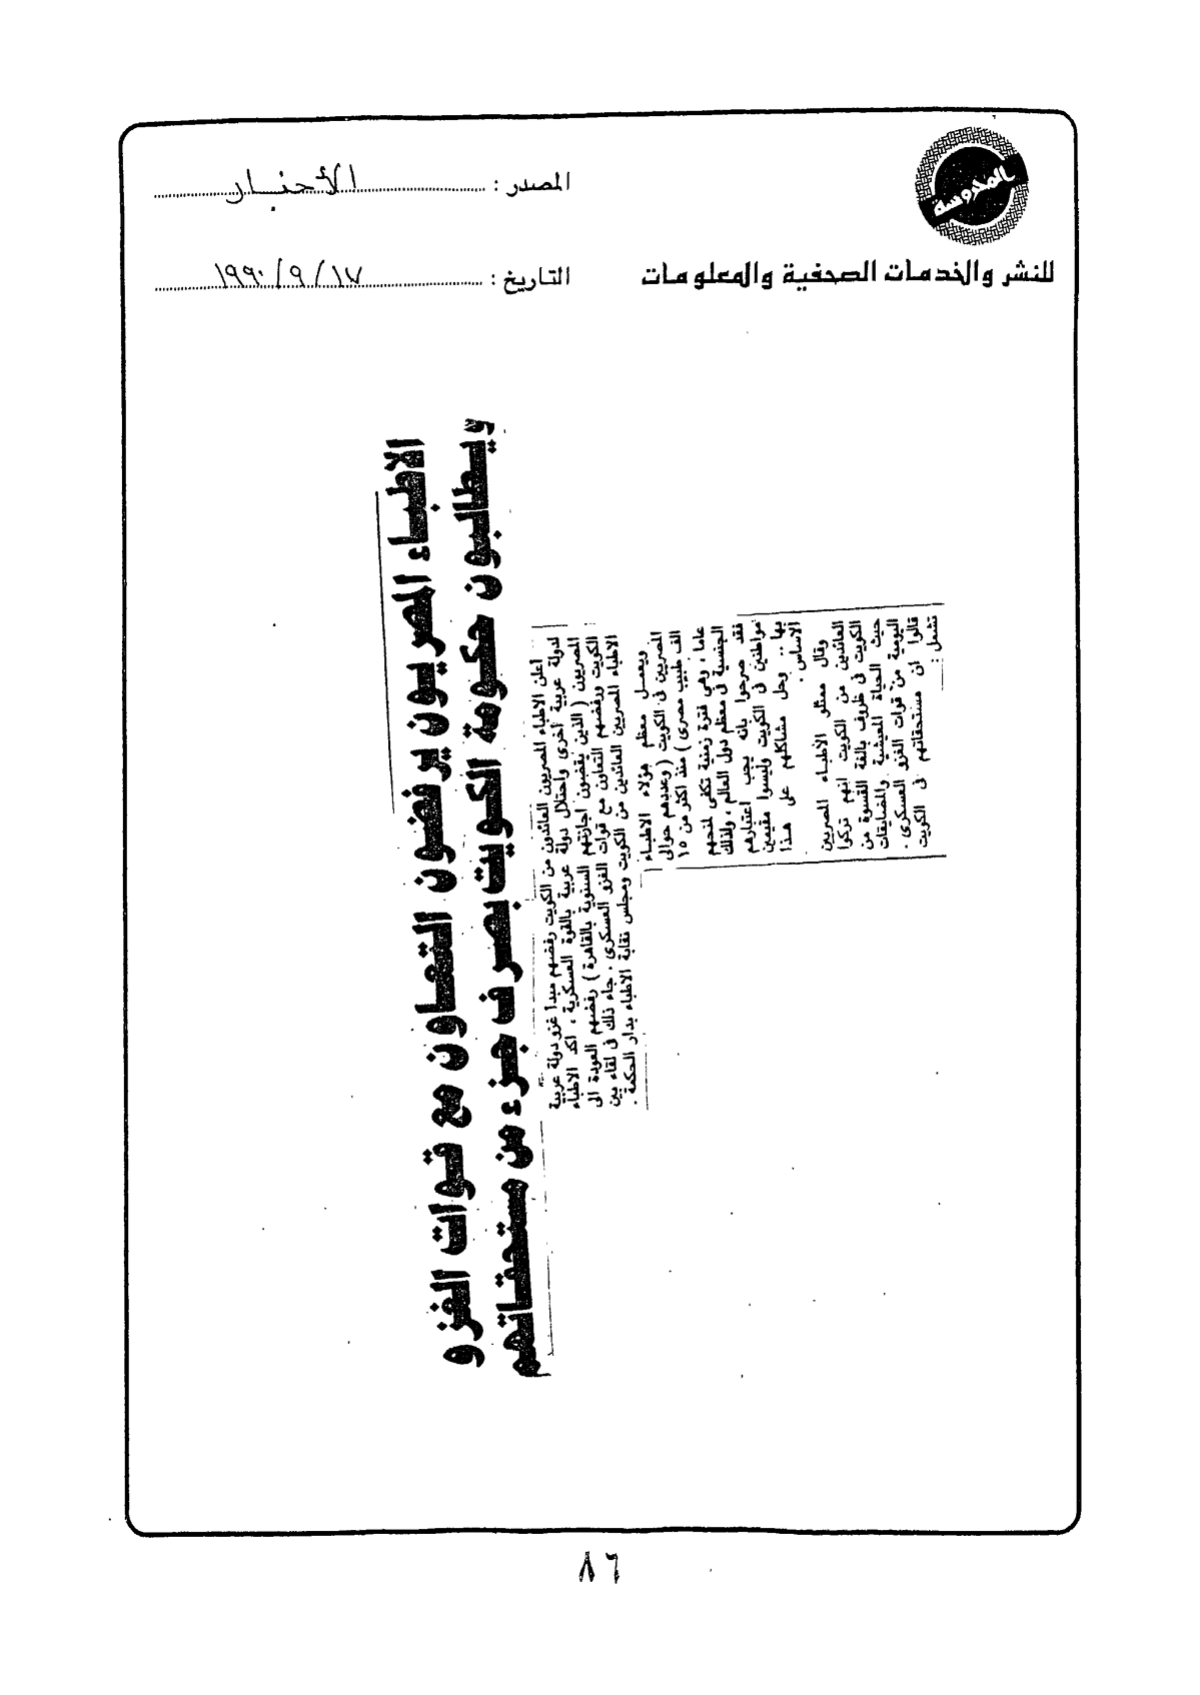 المحروسة
للنشر والخدمات الصحفية والمعلومات
المصدر : الأخبار
التاريخ : ١٧ / ٩ / ١٩٩٠
الأطباء المصريون يرفضون التعاون مع قوات الغزو
ويطالبون حكومة الكويت بصرف جزء من مستحقاتهم
اعلن الاطباء المصريون العائدون من الكويت رفضهم مبدا غزو دولة عربية
لدولة عربية اخرى واحتلال دولة عربية بالقوة العسكرية ، اكد الاطباء
المصريون ( الذين يقضون اجازتهم السنوية بالقاهرة ) رفضهم العودة الى
الكويت ورفضهم التعاون مع قوات الغزو العسكرى ، جاء ذلك فى لقاء بين
الاطباء المصريين العائدين من الكويت ومجلس نقابة الاطباء بدار الحكمة .
ويعمل معظم هؤلاء الاطباء
المصريين فى الكويت ( وعددهم حوالى
الف طبيب مصرى ) منذ اكثر من ١٥
عاما ، وهى فترة زمنية تكفى لمنحهم
الجنسية فى معظم دول العالم ، ولذلك
فقد صرحوا بانه يجب اعتبارهم
مواطنين فى الكويت وليسوا مقيمين
بها .. وحل مشاكلهم على هذا
الاساس .
وقال ممثلو الأطباء المصريين
العائدين من الكويت انهم تركوا
الكويت فى ظروف بالغة القسوة من
حيث الحياة المعيشية والمضايقات
اليومية من قوات الغزو العسكرى .
قالوا ان مستحقاتهم فى الكويت
تشمل :
٨٦